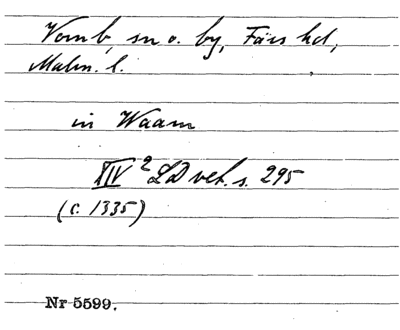 Vomb, sn o. by, Färs hd,
Malm. l.
in Waam
XIV 2 LD vet. s. 295
(c. 1335)
Nr 5599.